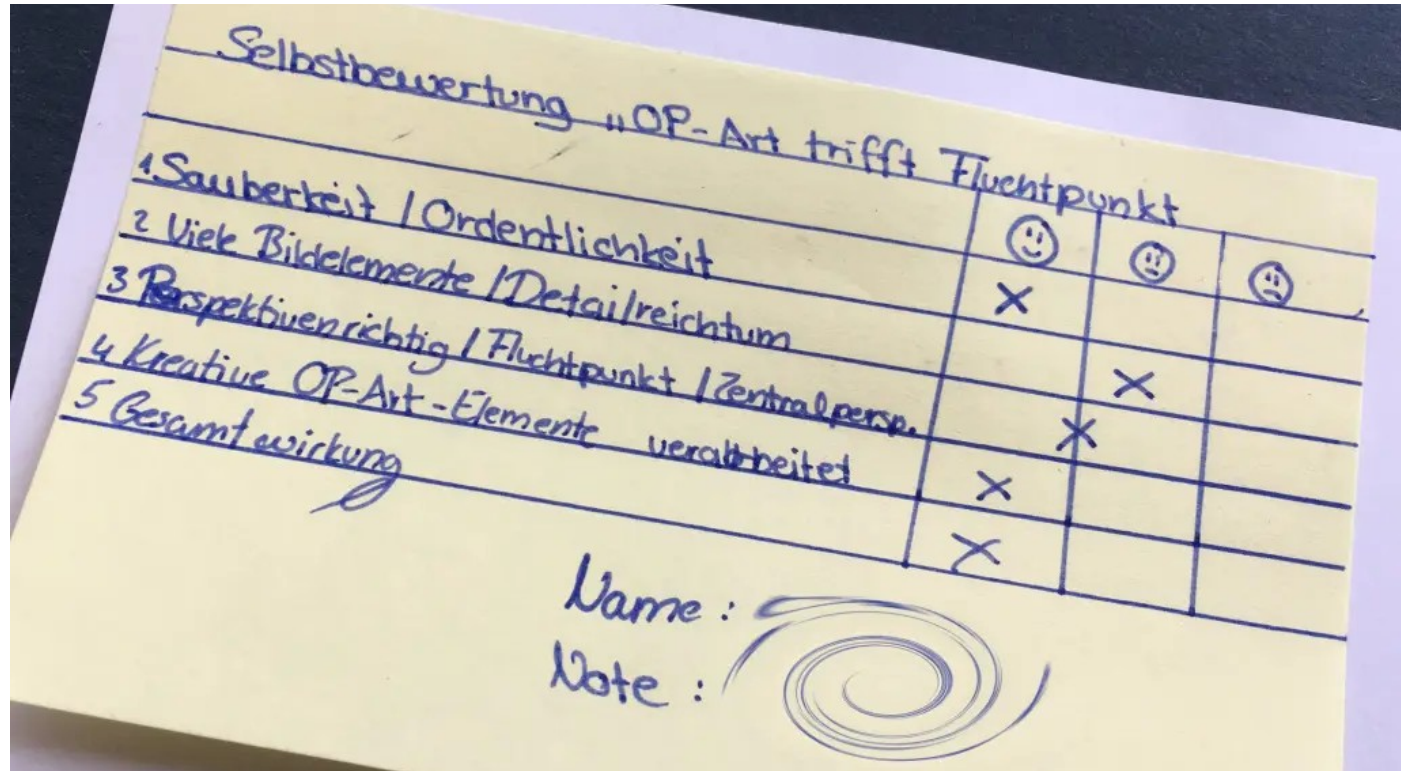 Selbstbewertung „OP-Art trifft Fluchtpunkt
1 Sauberkeit / Ordentlichkeit
2 Viele Bildelemente / Detailreichtum
3 Perspektiven richtig / Fluchtpunkt / Zentralpersp.
4 Kreative OP-Art-Elemente verarbeitet
5 Gesamtwirkung
Name :
Note :